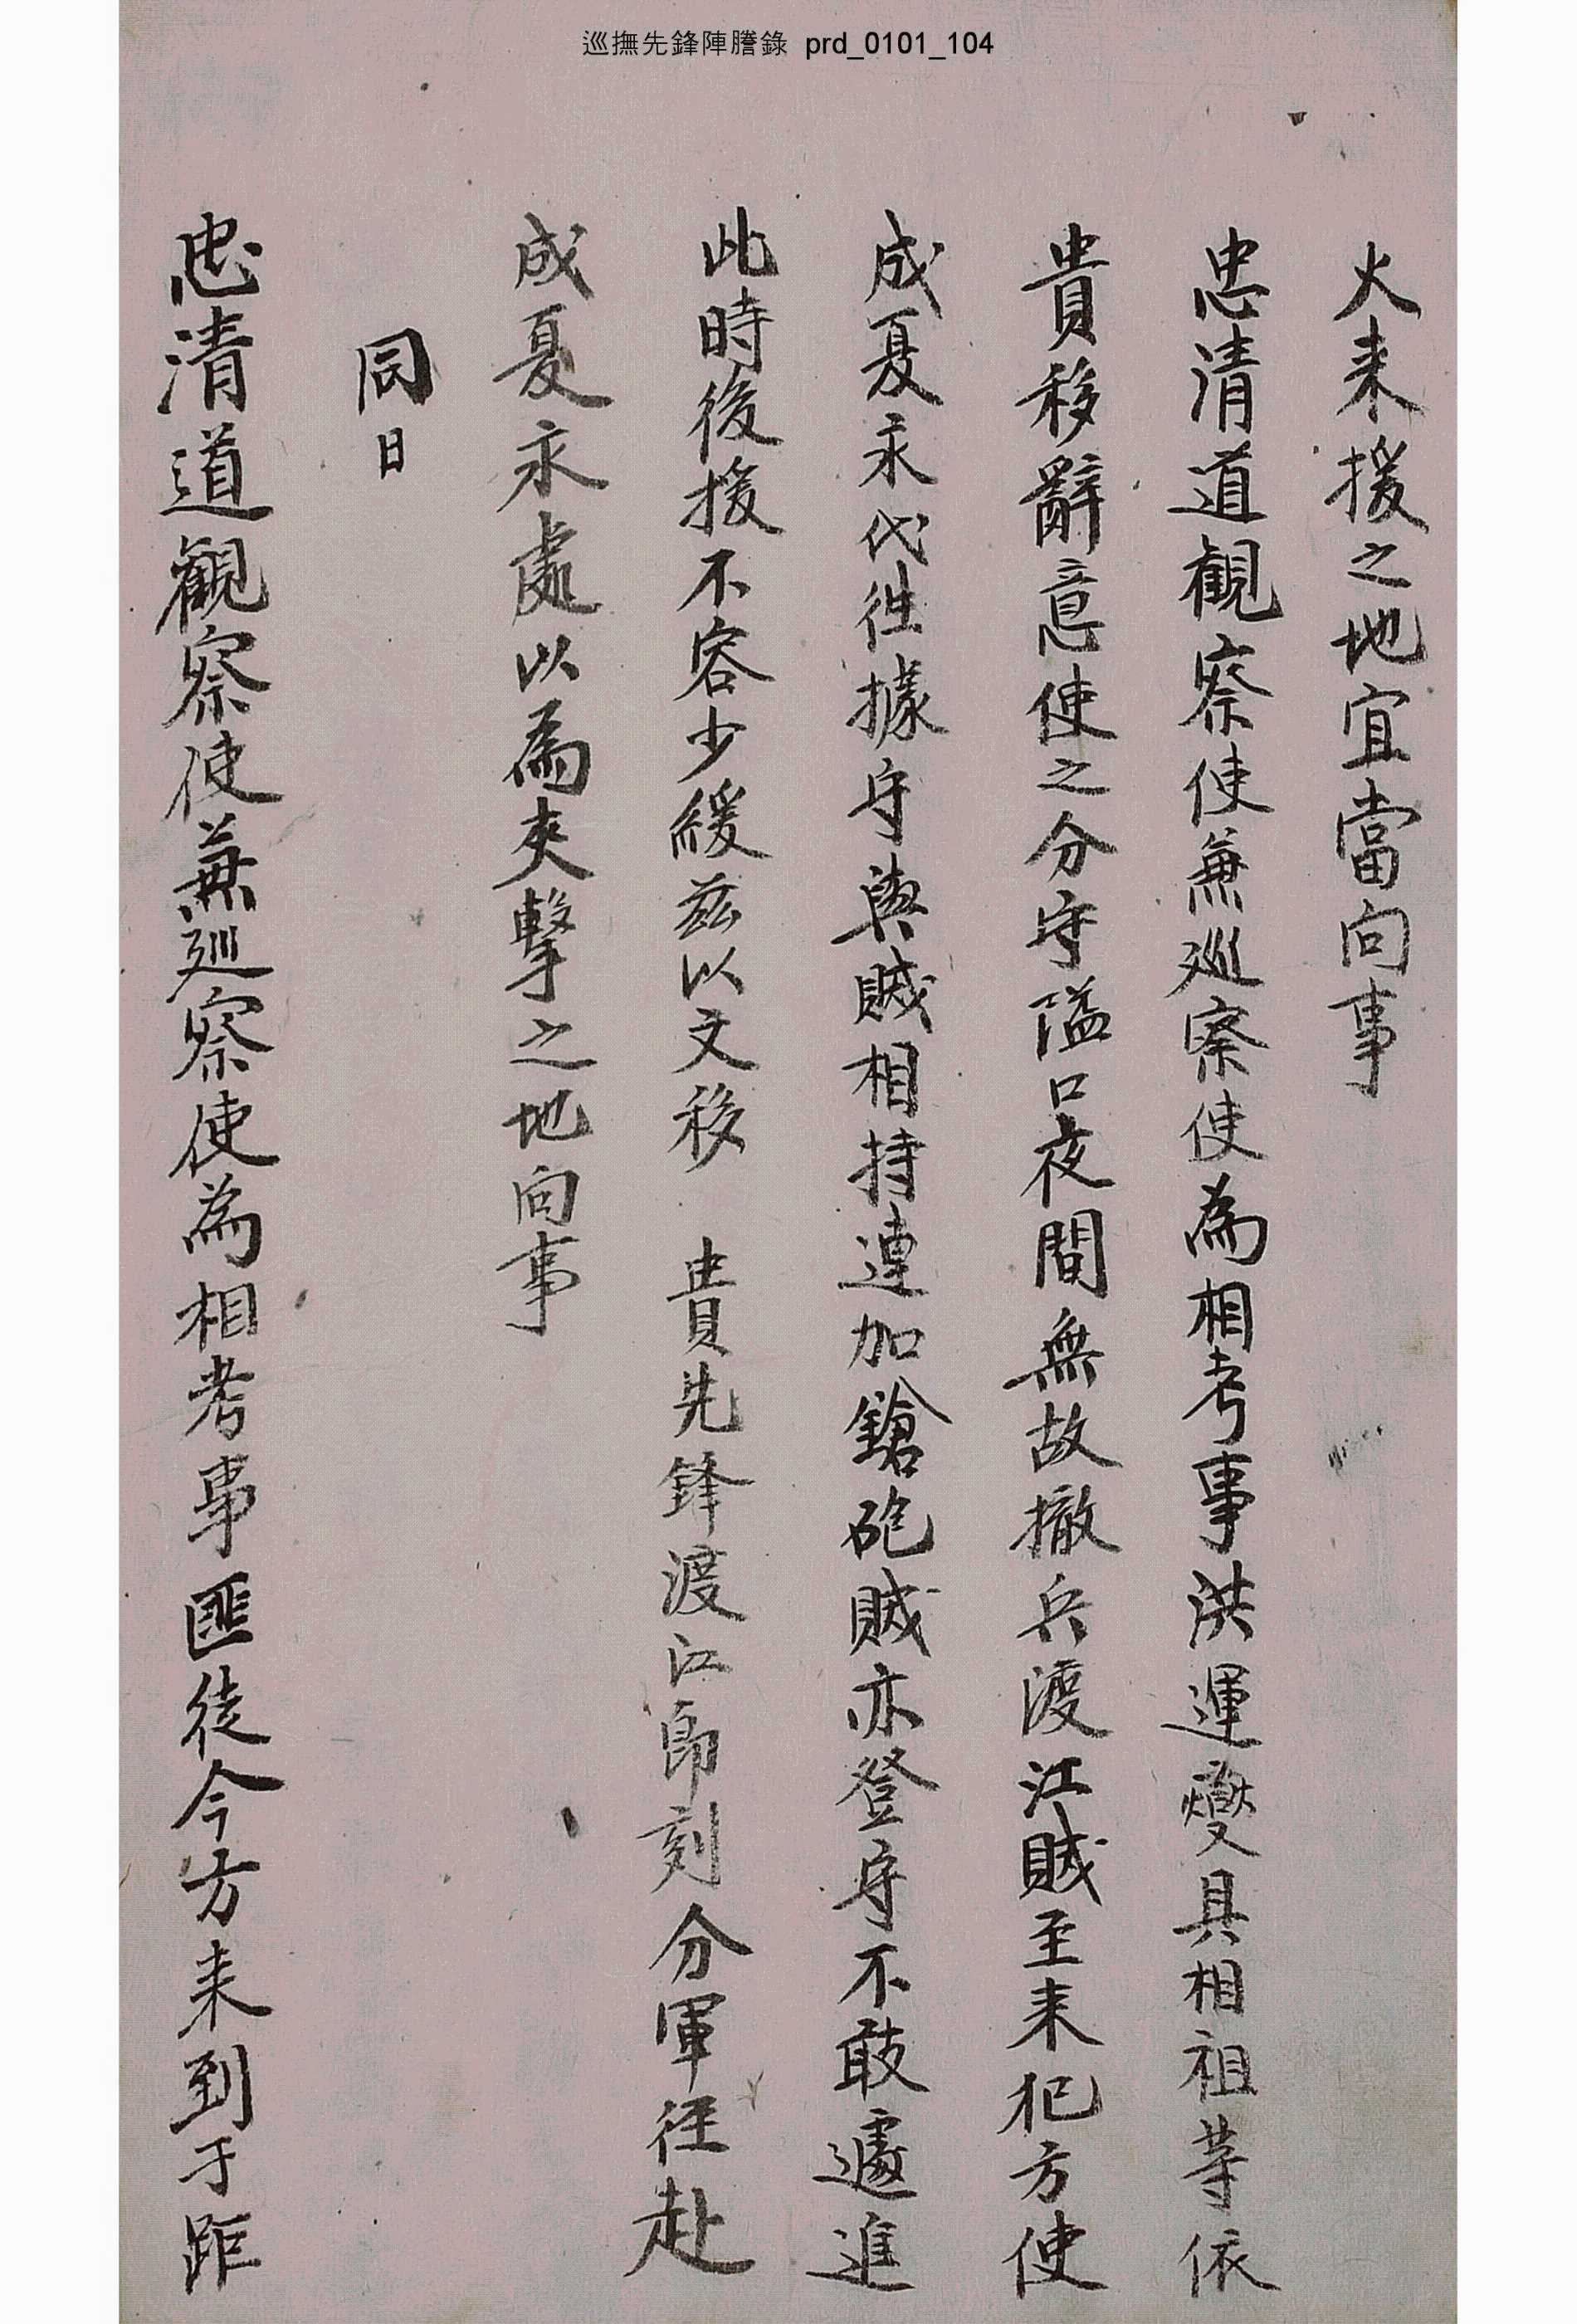 巡撫先鋒陣謄錄 prd_0101_104
火来援之地宜當向事
忠清道觀察使兼巡察使為相考事洪運燮具相祖等依
貴移辭意使之分守隘口夜間無故撤兵渡江賊至来犯方使
成夏永代往據守與賊相持連加鎗砲賊亦登守不敢遽進
此時後援不容少緩玆以文移 貴先鋒渡江即刻分軍往赴
成夏永處以為夾擊之地向事
同日
忠清道觀察使兼巡察使為相考事匪徒今方来到于距